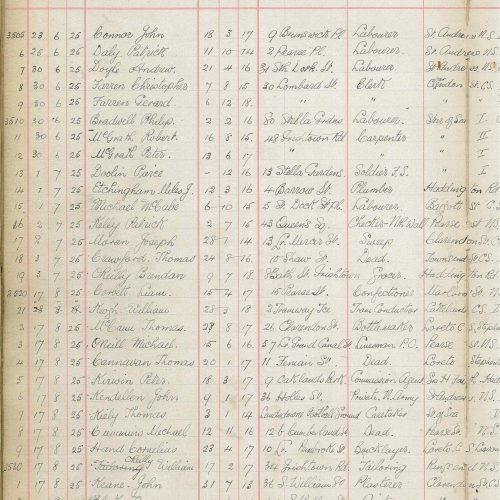 3505 23 6 25 Connor John 18 3 17 9 Brunswick Pl Labourer St. Andrews N.S.
6 25 6 25 Daly Patrick 11 10 14 2 Pearse Pl. Labourer. St. Andrews N.S.
7 30 6 25 Doyle Andrew. 21 4 16 31 Sth Dock St. Labourer St. Andrews N.S.
8 30 6 25 Farren Christopher 7 8 15 30 Lombard St. Clerk St. C.S.
9 30 6 25 Farren Gerard. 6 12 18. " " "
3510 30 6 25 Bradwell Philip. 2 2 16 80 Stella Gardens Labourer. Star of Sea I
11 30 6 25 McGrath Robert. 16 8 15. 48 Irishtown Rd Carpenter " II
12 30 6 25 McGrath Peter. 13 6 17 " " " I
13 1 7 25 Doolin Pierce - 12 16 13 Stella Gardens. Soldier F.S. " I
14 1 7 25 Etchingham Myles J. 12 3 16 4 Barrow St. Plumber Haddington Rd
15 1 7 25 Michael McCabe 6 10 15 5 St. Dock St Pl. Labourer. St C.S.
16 2 7 25 Kelly Patrick 2 7 15 43 Queens Sq. Checker Nth Wall Pearse St N.S.
17 2 7 25 Moran Joseph 28 7 14 13 Lr. Mercer St. Sweep Clarendon St C.S.
18 3 7 25 Crawford. Thomas 24 8 16 10 Shaw St. Dead. Townsend St. C.S.
19 3 7 25 O'Reilly Brendan 9 7 18 Bath St. Irishtown Grocer. Haddington Rd
3520 17 8 25 Corbett Liam. 15 4 17 15 Pearse St. Confectioner N.S.
21 8 25 Keogh William 28 3 18 2 Tramway Tce Tram Conductor C.S. I
2 17 8 25 McCann Thomas. 28 8 17 26 Clarendon St. Loreto C.S. Stephens
3 17 8 25 O'Neill Michael. 15 6 16. 57 Lr Grand Canal St Lineman P.O. Pearse St N.S.
4 17 8 25 Cannavan Thomas 20 1 17 11 Fenian St Dead. Loreto Stephens
5 17 8 25 Kirwin Peter. 18 3 17 9 Oaklands Park. Commission Agent
6 17 8 25 Kendellen John 9 1 17 36 Holles St. Private, W. Army St Andrews, N.S.
7 17 8 25 Kiely Thomas 3 1 14 Lansdowne Football Ground Caretaker St. of Sea
8 17 8 25 Cummins Michael 12 11 16 12 Cumberland St Dead. Pearse St. N.S.
9 17 8 25 Hand Cornelius 23 4 17 10 Lr. St Bricklayer. Loreto C.S.
3530 17 8 25 William 17 2 17 34 Irishtown Rd Tailoring Ringsend N.S.
1 17 8 25 Keane John 31 7 15 St William St Plasterer Clarendon St C.S.